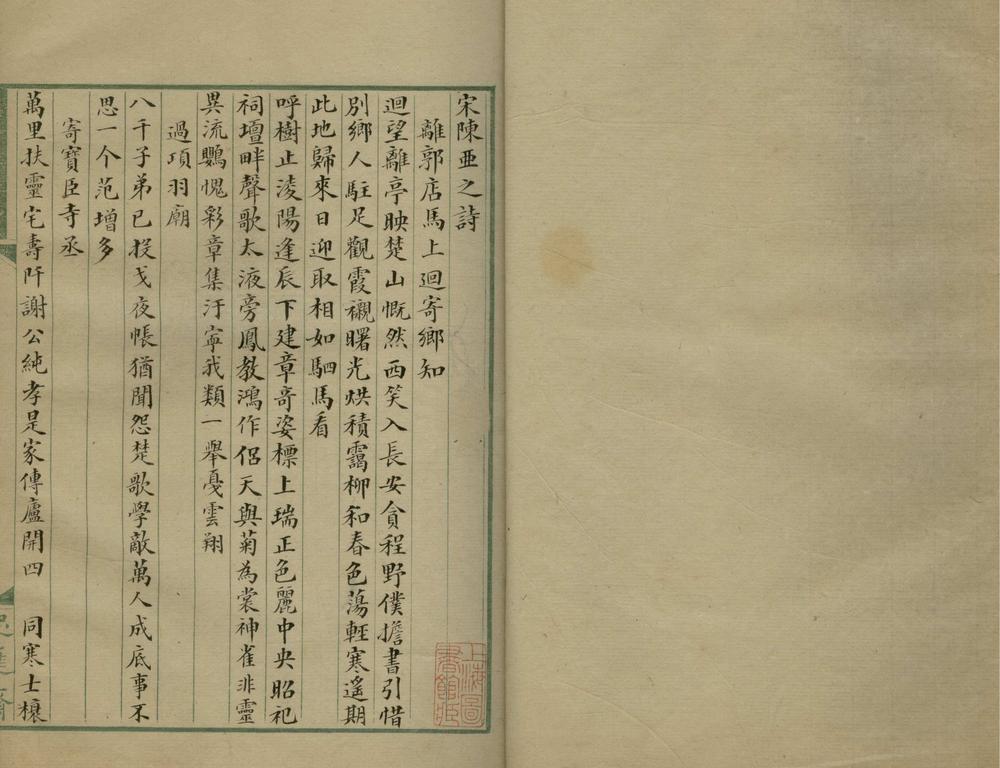 宋陳亞之詩
離郭店馬上迴寄鄉知
迴望離亭映楚山慨然西笑入長安貪程野僕擔書引惜
別鄉人駐足觀霞襯曙光烘積靄柳和春色蕩輕寒遙期
此地歸來日迎取相如駟馬看
呼樹止淩陽逢辰下建章奇姿標上瑞正色麗中央昭祀
祠壇畔聲歌太液旁鳳教鴻作侶天與菊為裳神雀非靈
異流鸚愧彩章集汙寧我類一舉戞雲翔
過項羽廟
八千子弟已投戈夜帳猶聞怨楚歌學敵萬人成底事不
思一个范增多
寄寶臣寺丞
萬里扶靈宅壽阡謝公純孝是家傳廬開四 同寒士榱
上海圖書館藏